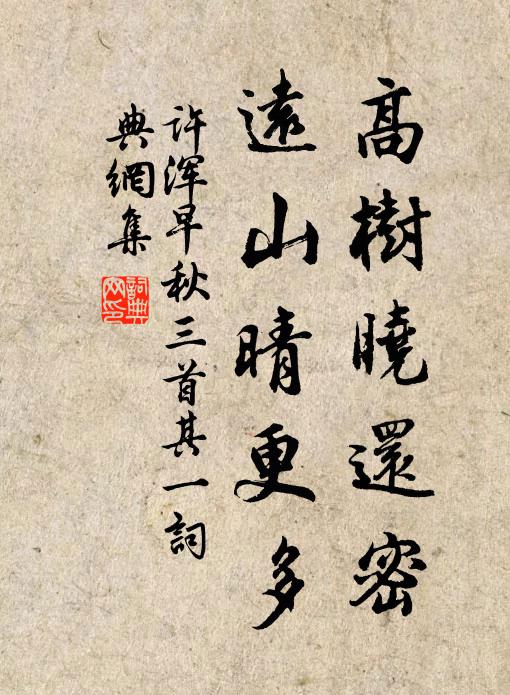 高樹曉還密
遠山晴更多
許渾早秋三首其一詞
典網集
詞典
网印